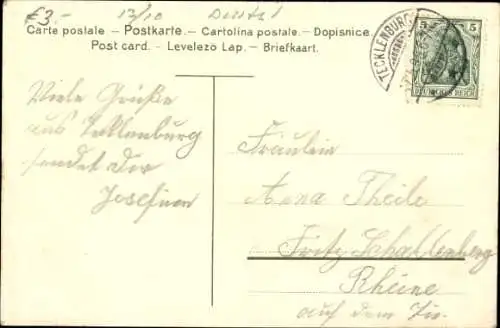 £3.-
12/10
Carte postale – Postkarte. – Cartolina postale. – Dopisnice
Post card. – Levelező Lap. – Briefkaart.
TECKLENBURG
5 5
DEUTSCHES REICH
Viele Grüße
aus Tecklenburg
sendet Dir
Josefine
Fräulein
Anna Theile
Fritz Schallenberg
Rheine
auf dem